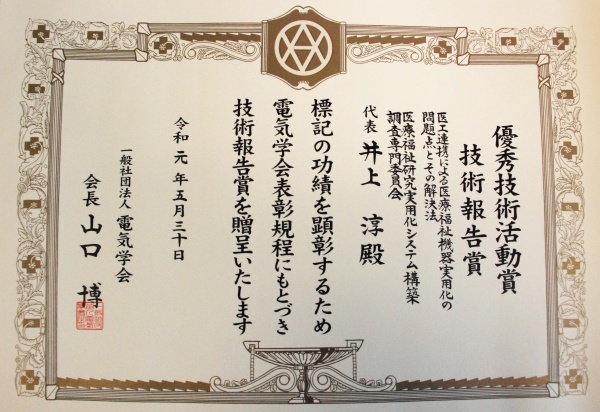 優秀技術活動賞
技術報告賞
医工連携による医療福祉機器実用化の
問題点とその解決法
医療福祉研究実用化システム構築
調査専門委員会
代表 井上 淳殿
標記の功績を顕彰するため
電気学会表彰規程にもとづき
技術報告賞を贈呈いたします
令和元年五月三十日
一般社団法人 電気学会
会長 山口 博